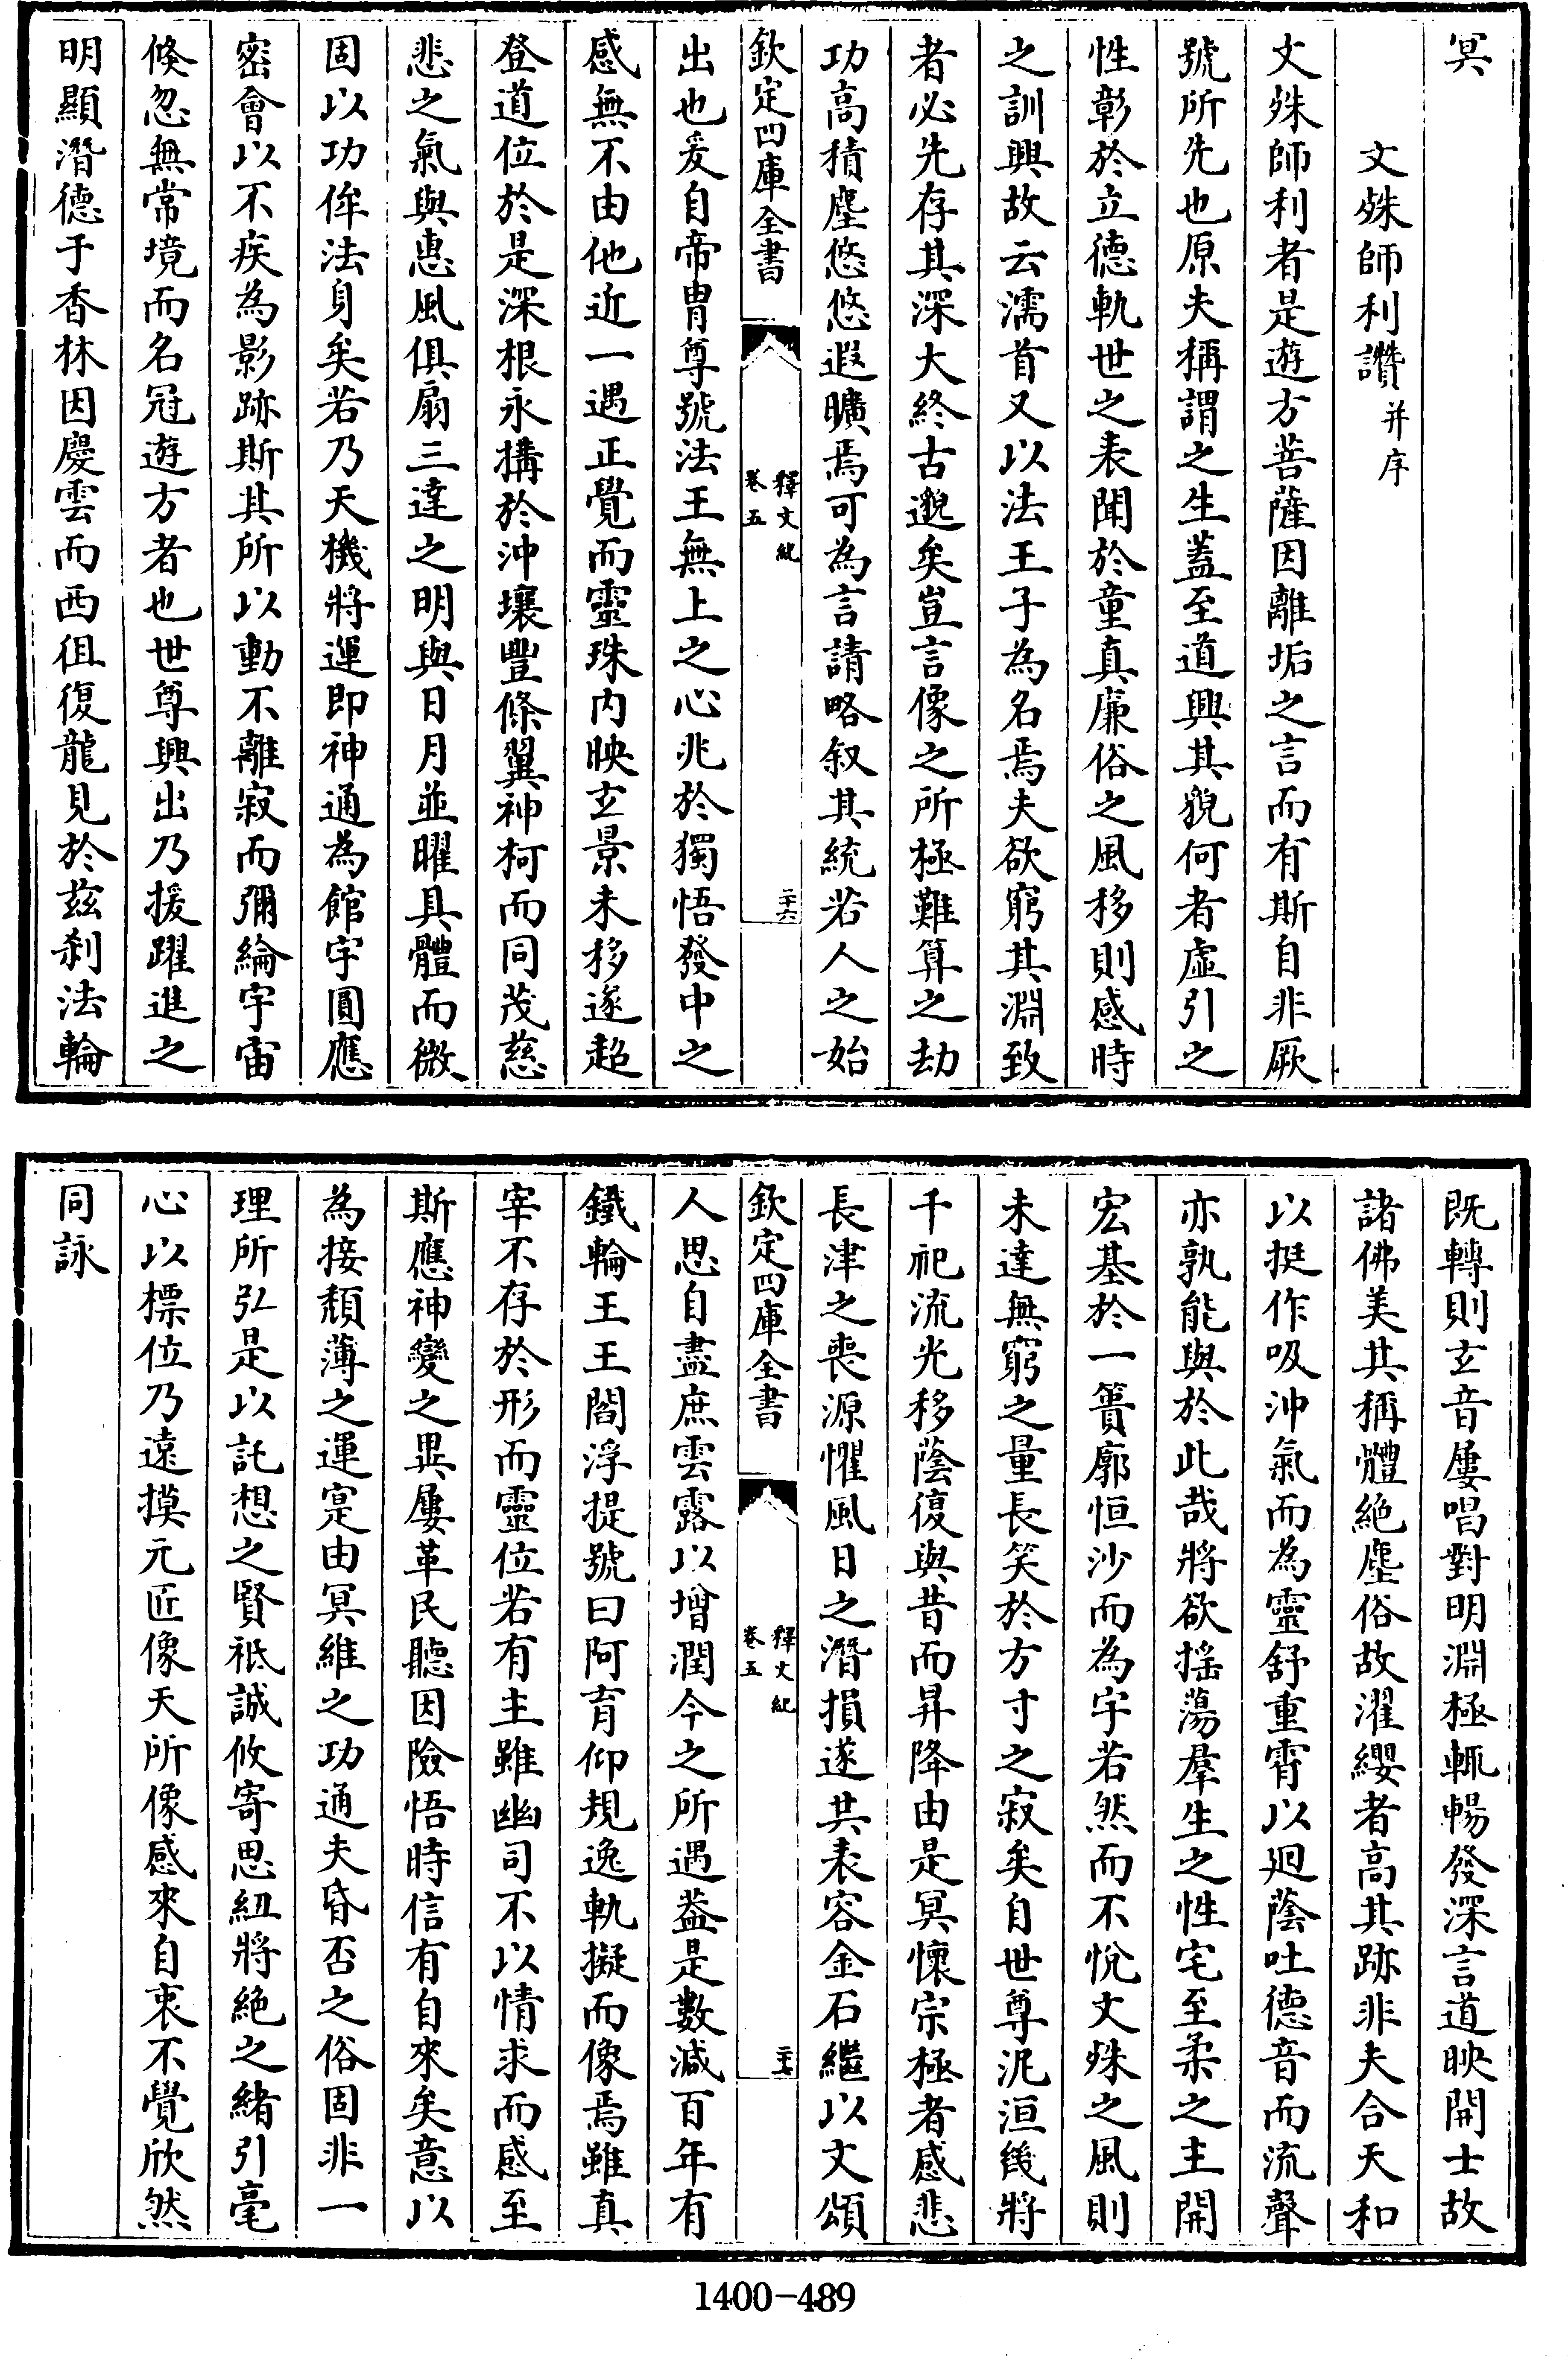 冥
文殊師利讚并序
文殊師利者是遊方菩薩因離垢之言而有斯自非厥
號所先也原夫稱謂之生蓋至道興其貌何者虛引之
性彰於立德軌世之表聞於童真廉俗之風移則感時
之訓興故云濡首又以法王子為名焉夫欲窮其淵致
者必先存其深大終古邈矣豈言像之所極難算之劫
功高積塵悠悠遐曠焉可為言請略叙其統若人之始
欽定四庫全書
釋文紀
卷五
二十六
出也爰自帝胄尊號法王無上之心兆於獨悟發中之
感無不由他近一遇正覺而靈珠内映玄景未移遂超
登道位於是深根永搆於沖壤豐條翼神柯而同茂慈
悲之氣與惠風俱扇三達之明與日月並曜具體而微
固以功侔法身矣若乃天機將運即神通為館宇圓應
密會以不疾為影跡斯其所以動不離寂而彌綸宇宙
倏忽無常境而名冠遊方者也世尊興出乃援躍進之
明顯潛德于香林因慶雲而西徂復龍見於兹刹法輪
既轉則玄音屢唱對明淵極輒暢發深言道映開士故
諸佛美其稱體絶塵俗故濯纓者高其跡非夫合天和
以挺作吸沖氣而為靈舒重霄以廻蔭吐德音而流聲
亦孰能與於此哉將欲摇蕩羣生之性宅至柔之主開
宏基於一簣廓恒沙而為宇若然而不悅文殊之風則
未達無窮之量長笑於方寸之寂矣自世尊泥洹幾將
千祀流光移蔭復與昔而昇降由是冥懷宗極者感悲
長津之喪源懼風日之潛損遂共表容金石繼以文頌
欽定四庫全書
釋文紀
卷五
二十七
人思自盡庶雲露以增潤今之所遇葢是數減百年有
鐵輪王王閻浮提號曰阿育仰規逸軌擬而像焉雖真
宰不存於形而靈位若有主雖幽司不以情求而感至
斯應神變之異屢革民聽因險悟時信有自來矣意以
為接頽薄之運寔由冥維之功通夫昏否之俗固非一
理所弘是以託想之賢祗誠攸寄思紐將絶之緒引毫
心以標位乃遠摸元匠像天所像感來自衷不覺欣然
同詠
1400-489